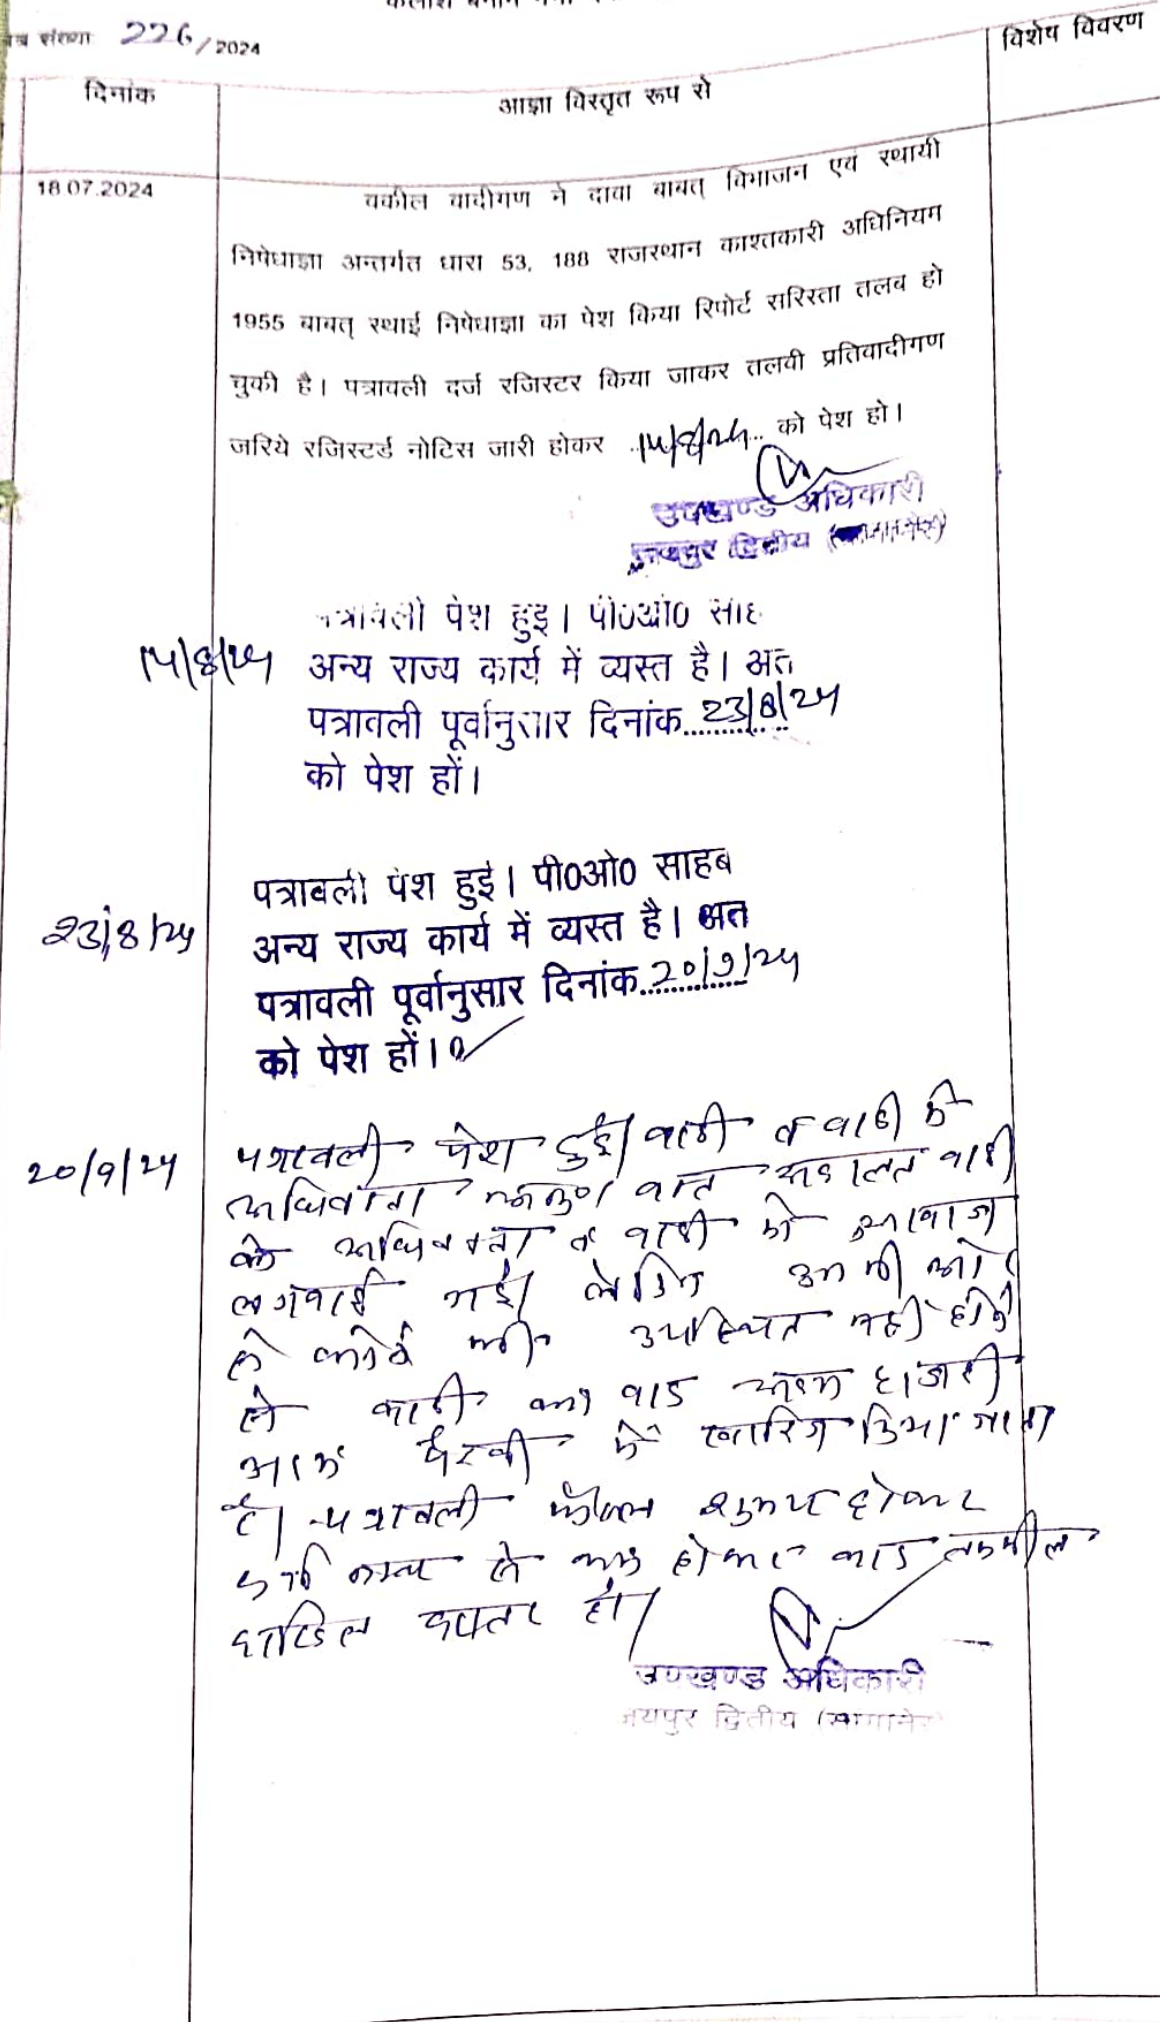 संख्या 226/2024
विशेष विवरण
दिनांक
आज्ञा विस्तृत रूप से
18.07.2024
वकील वादीगण ने दावा बाबत् विभाजन एवं स्थायी
निषेधाज्ञा अन्तर्गत धारा 53, 188 राजस्थान काश्तकारी अधिनियम
1955 बाबत् स्थाई निषेधाज्ञा का पेश किया रिपोर्ट सरिस्ता तलब हो
चुकी है। पत्रावली दर्ज रजिस्टर किया जाकर तलवी प्रतिवादीगण
जरिये रजिस्टर्ड नोटिस जारी होकर 14/8/24 को पेश हो।
उपखण्ड अधिकारी
जयपुर द्वितीय
पत्रावली पेश हुइ। पी0ओ0 साह
14/8/24 अन्य राज्य कार्य में व्यस्त है। अत
पत्रावली पूर्वानुसार दिनांक 23/8/24
को पेश हों।
पत्रावली पेश हुई। पी0ओ0 साहब
23/8/24 अन्य राज्य कार्य में व्यस्त है। अत
पत्रावली पूर्वानुसार दिनांक 20/9/24
को पेश हों।
20/9/24 पत्रावली पेश हुई। वादी व वादी के
अधिवक्ता वादी
के अधिवक्ता व वादी को आवाज
लगवाई गई। लेकिन उनकी ओर
से कोई भी उपस्थित नहीं होने
से वादी का वाद अदम हाजरी
पैरवी में खारिज किया जाता
है। पत्रावली फैसल शुमार होकर
से कम होकर बाद तकमील
दाखिल दफ्तर हो।
उपखण्ड अधिकारी
जयपुर द्वितीय (सांगानेर)